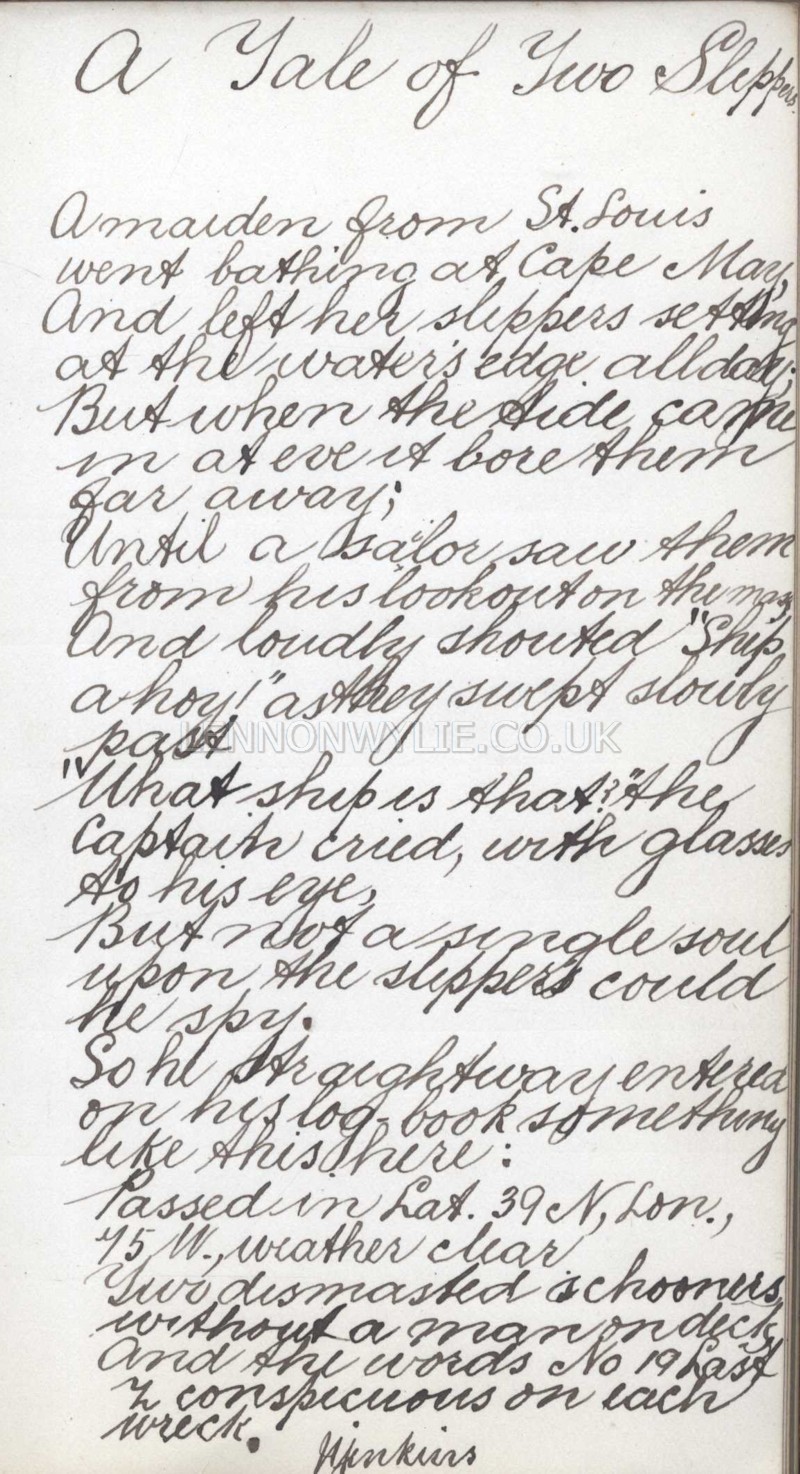 A Tale of Two Slippers.
A maiden from St. Louis
went bathing at Cape May,
And left her slippers setting
at the water's edge all day;
But when the tide came
in at eve it bore them
far away;
Until a sailor saw them
from his lookout on the mast
And loudly shouted "Ship
ahoy!" as they swept slowly
past
LENNONWYLIE.CO.UK
"What ship is that?" the
Captain cried, with glasses
to his eye,
But not a single soul
upon the slippers could
he spy.
So he straightway entered
on his log-book something
like this here:
Passed in Lat. 39 N, Lon.,
75 W., weather clear
Two dismasted schooners,
without a man on deck,
And the words No 19 Last
Z conspicuous on each
wreck.